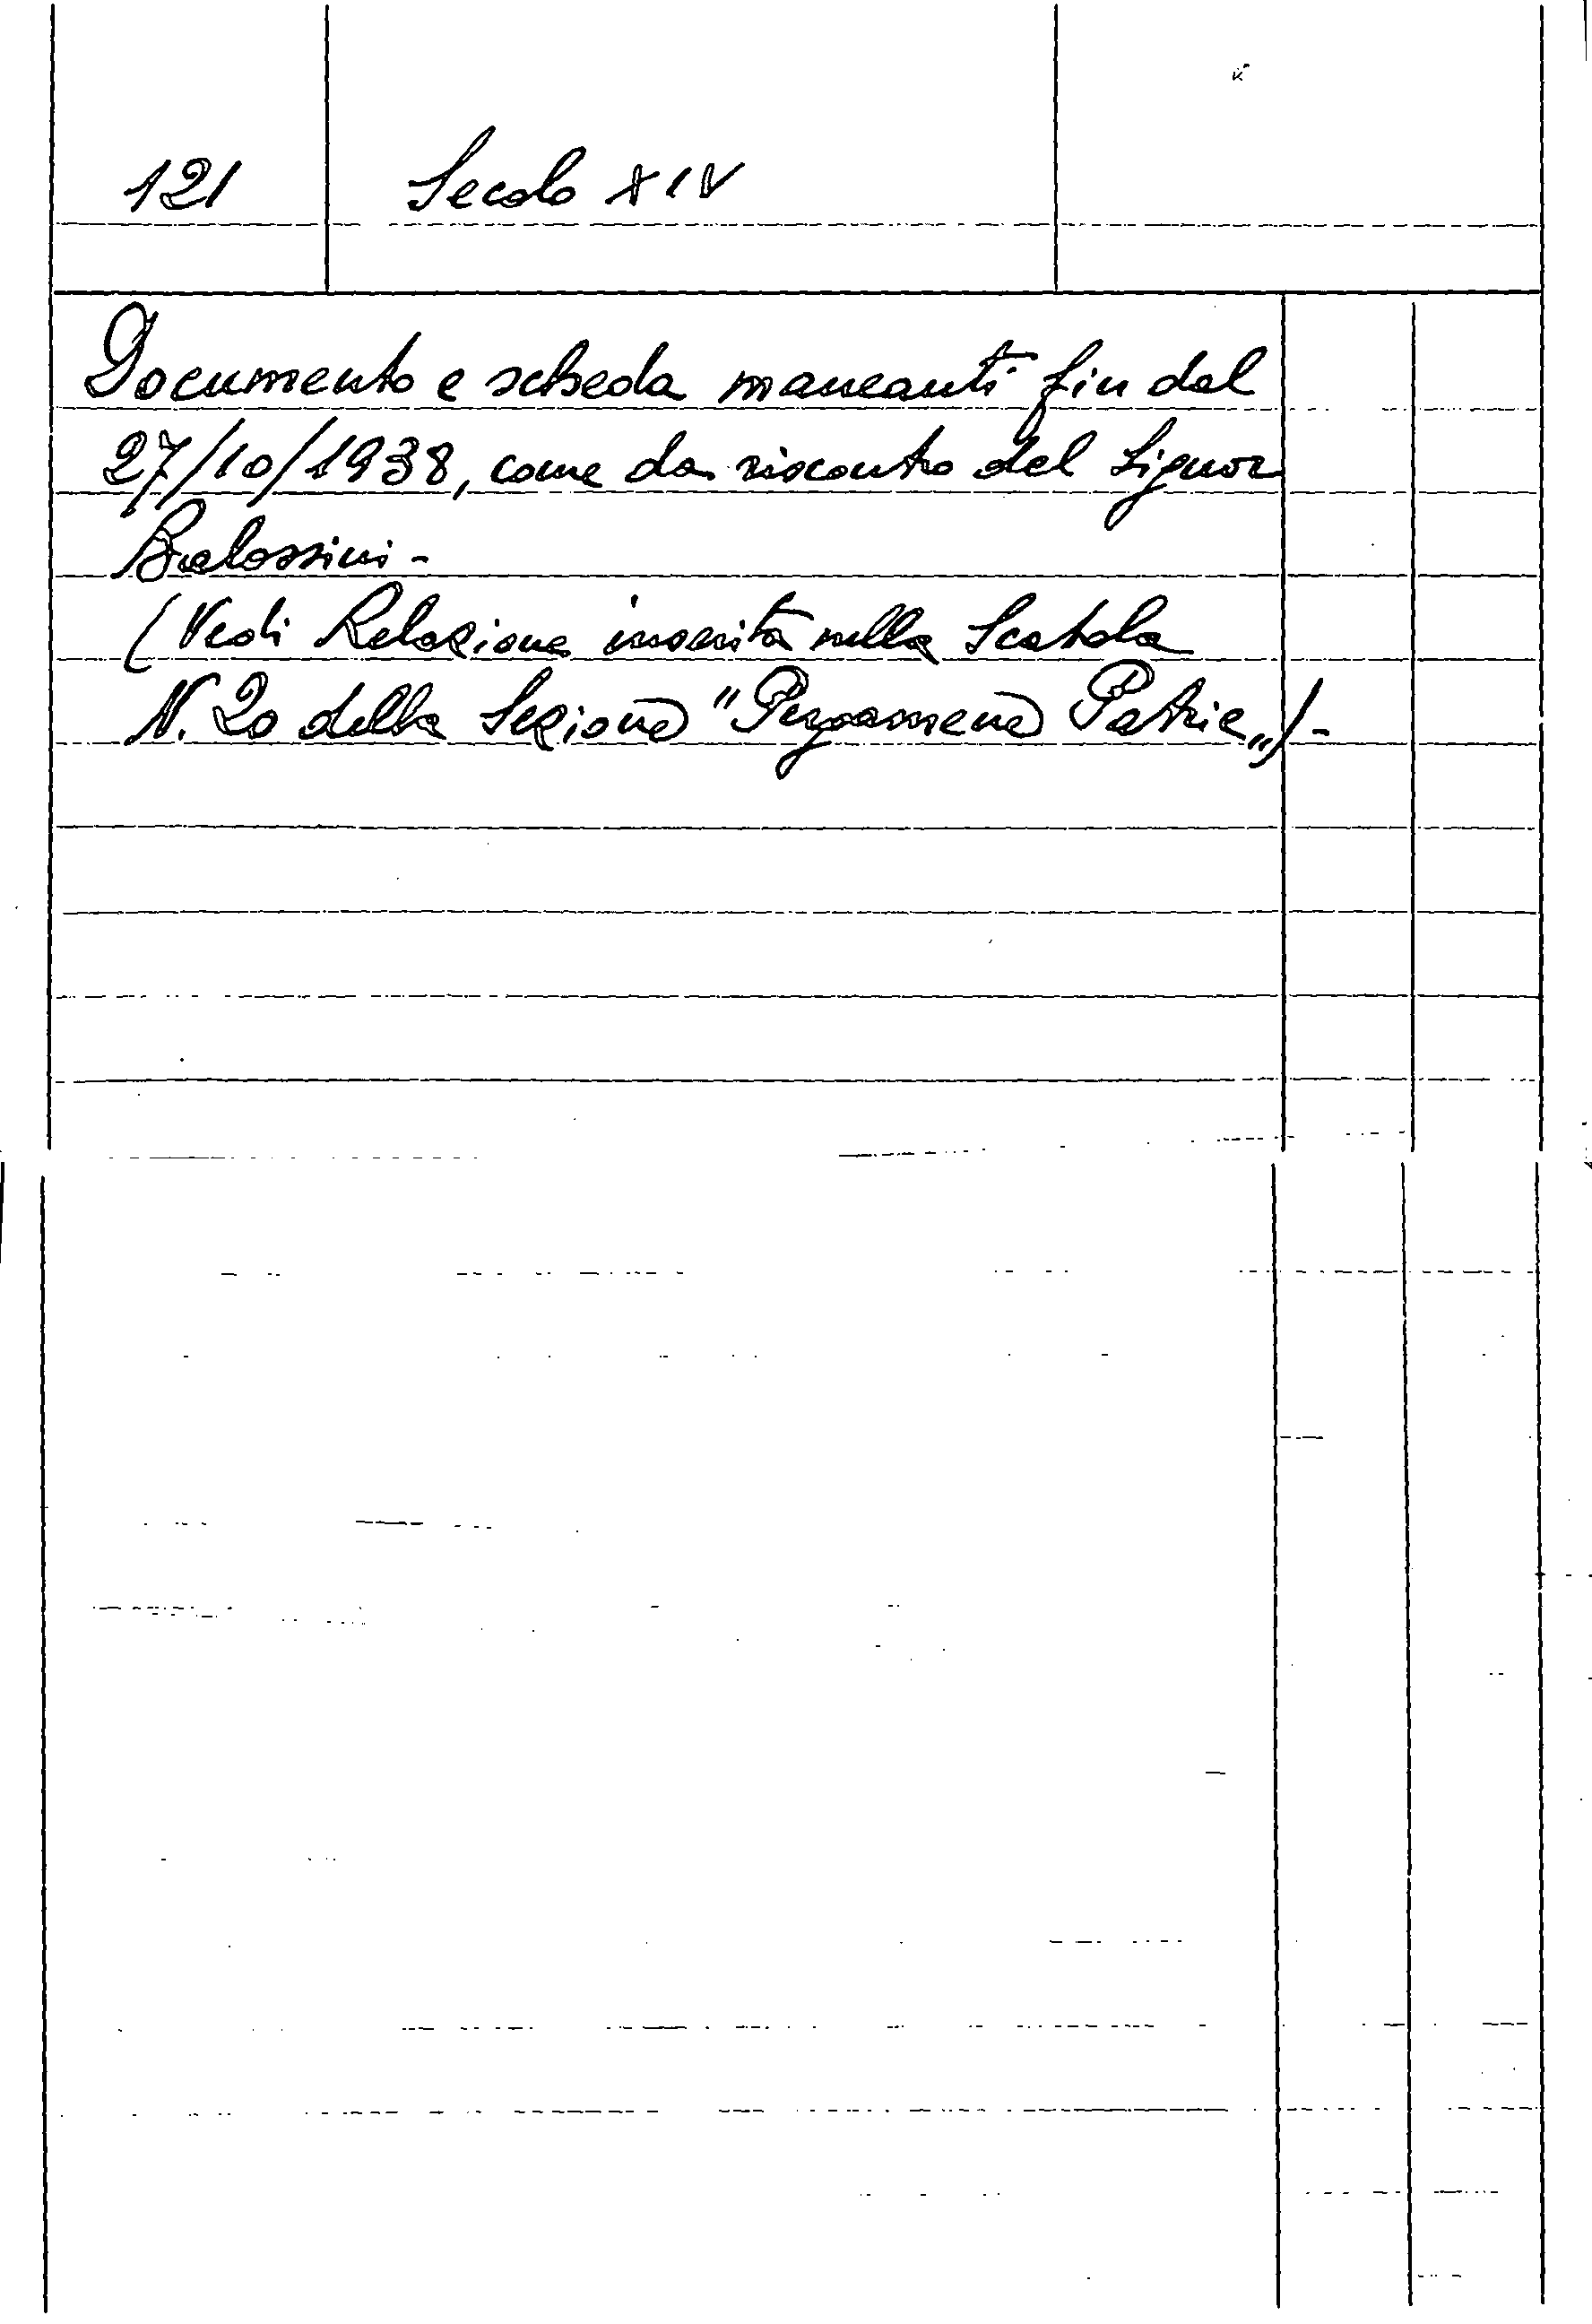 121 Secolo XIV
Documento e scheda mancanti fin dal
27/10/1938, come da riscontro del Signor
Balossini -
(Vedi Relazione inserita nella Scatola
N. 20 della Sezione "Pergamene Patrie„) -